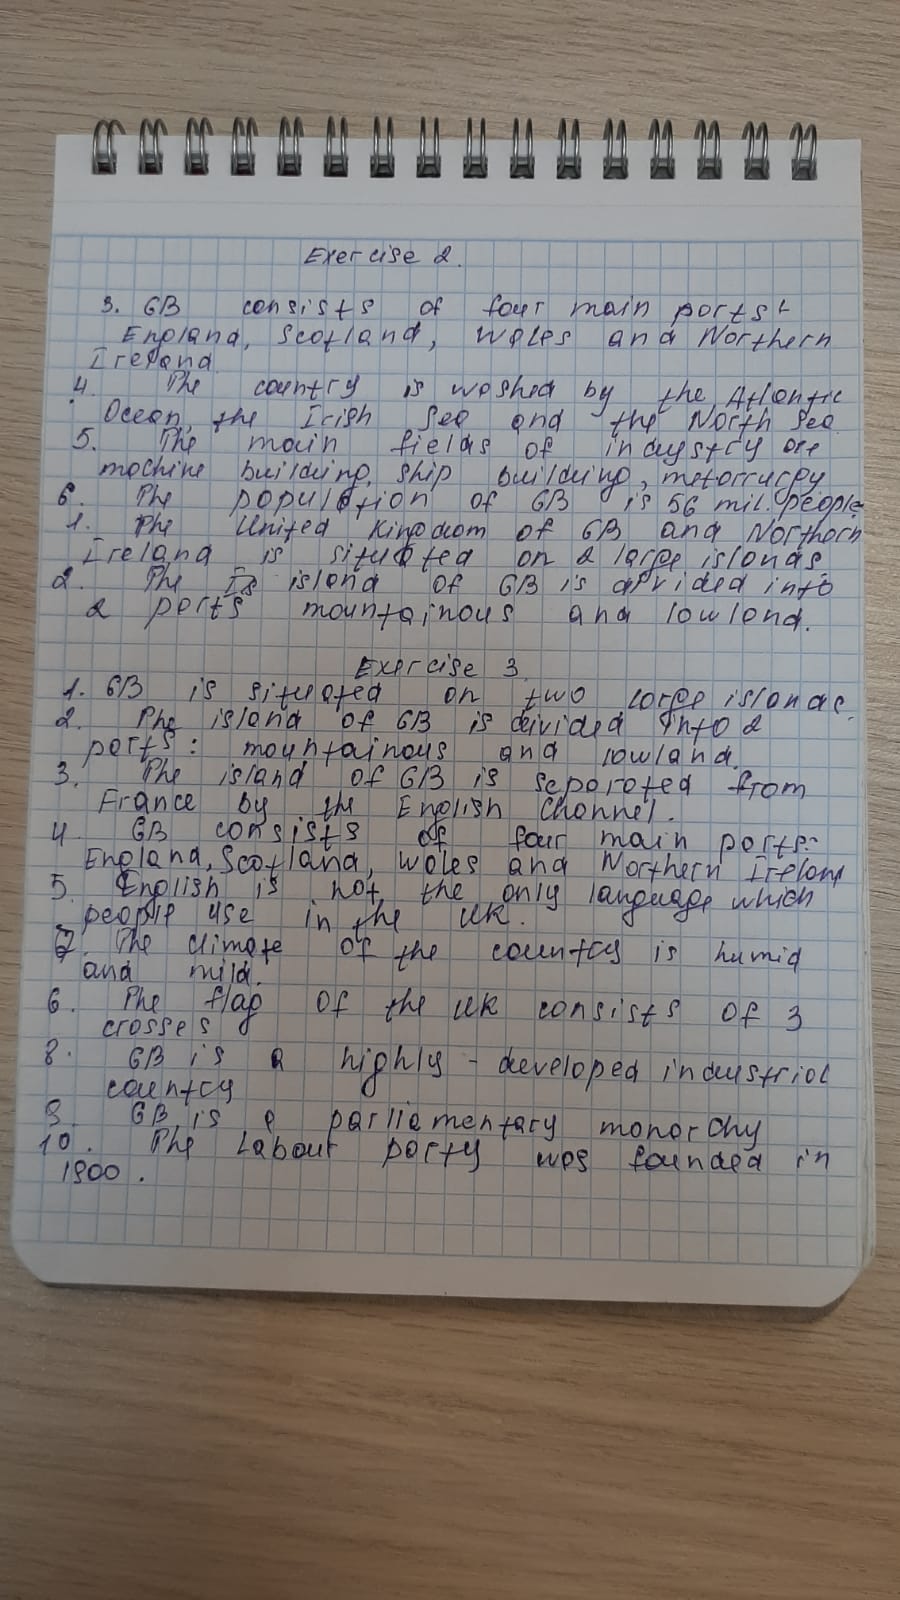 Exercise 2.
3. GB consists of four main parts:
England, Scotland, Wales and Northern
Ireland.
4. The country is washed by the Atlantic
Ocean, the Irish Sea and the North Sea
5. The main fields of industry are
machine building, ship building,
6. The population of GB is 56 mil. people
1. The United Kingdom of GB and Northern
Ireland is situated on 2 large islands.
2. The island of GB is divided into
2 parts mountainous and lowland.
Exercise 3.
1. GB is situated on two large islands.
2. The island of GB is divided into 2
parts: mountainous and lowland.
3. The island of GB is separated from
France by the English Channel.
4. GB consists of four main parts:
England, Scotland, Wales and Northern Ireland
5. English is not the only language which
people use in the UK.
7. The climate of the country is humid
and mild.
6. The flag of the UK consists of 3
crosses
8. GB is a highly - developed industrial
country
9. GB is a parliamentary monarchy
10. The Labout party was founded in
1900.